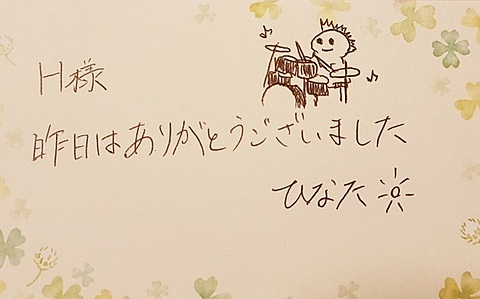 H様
昨日はありがとうございました
ひなた